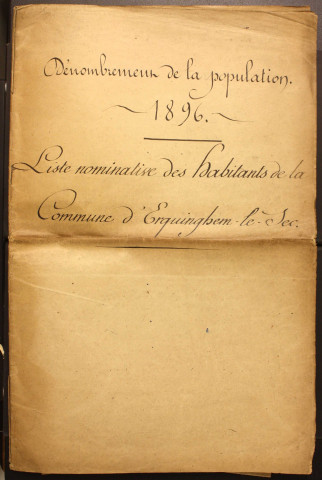 Dénombrement de la population.
~ 1896. ~
Liste nominative des habitants de la
Commune d'Erquinghem-le-Sec.